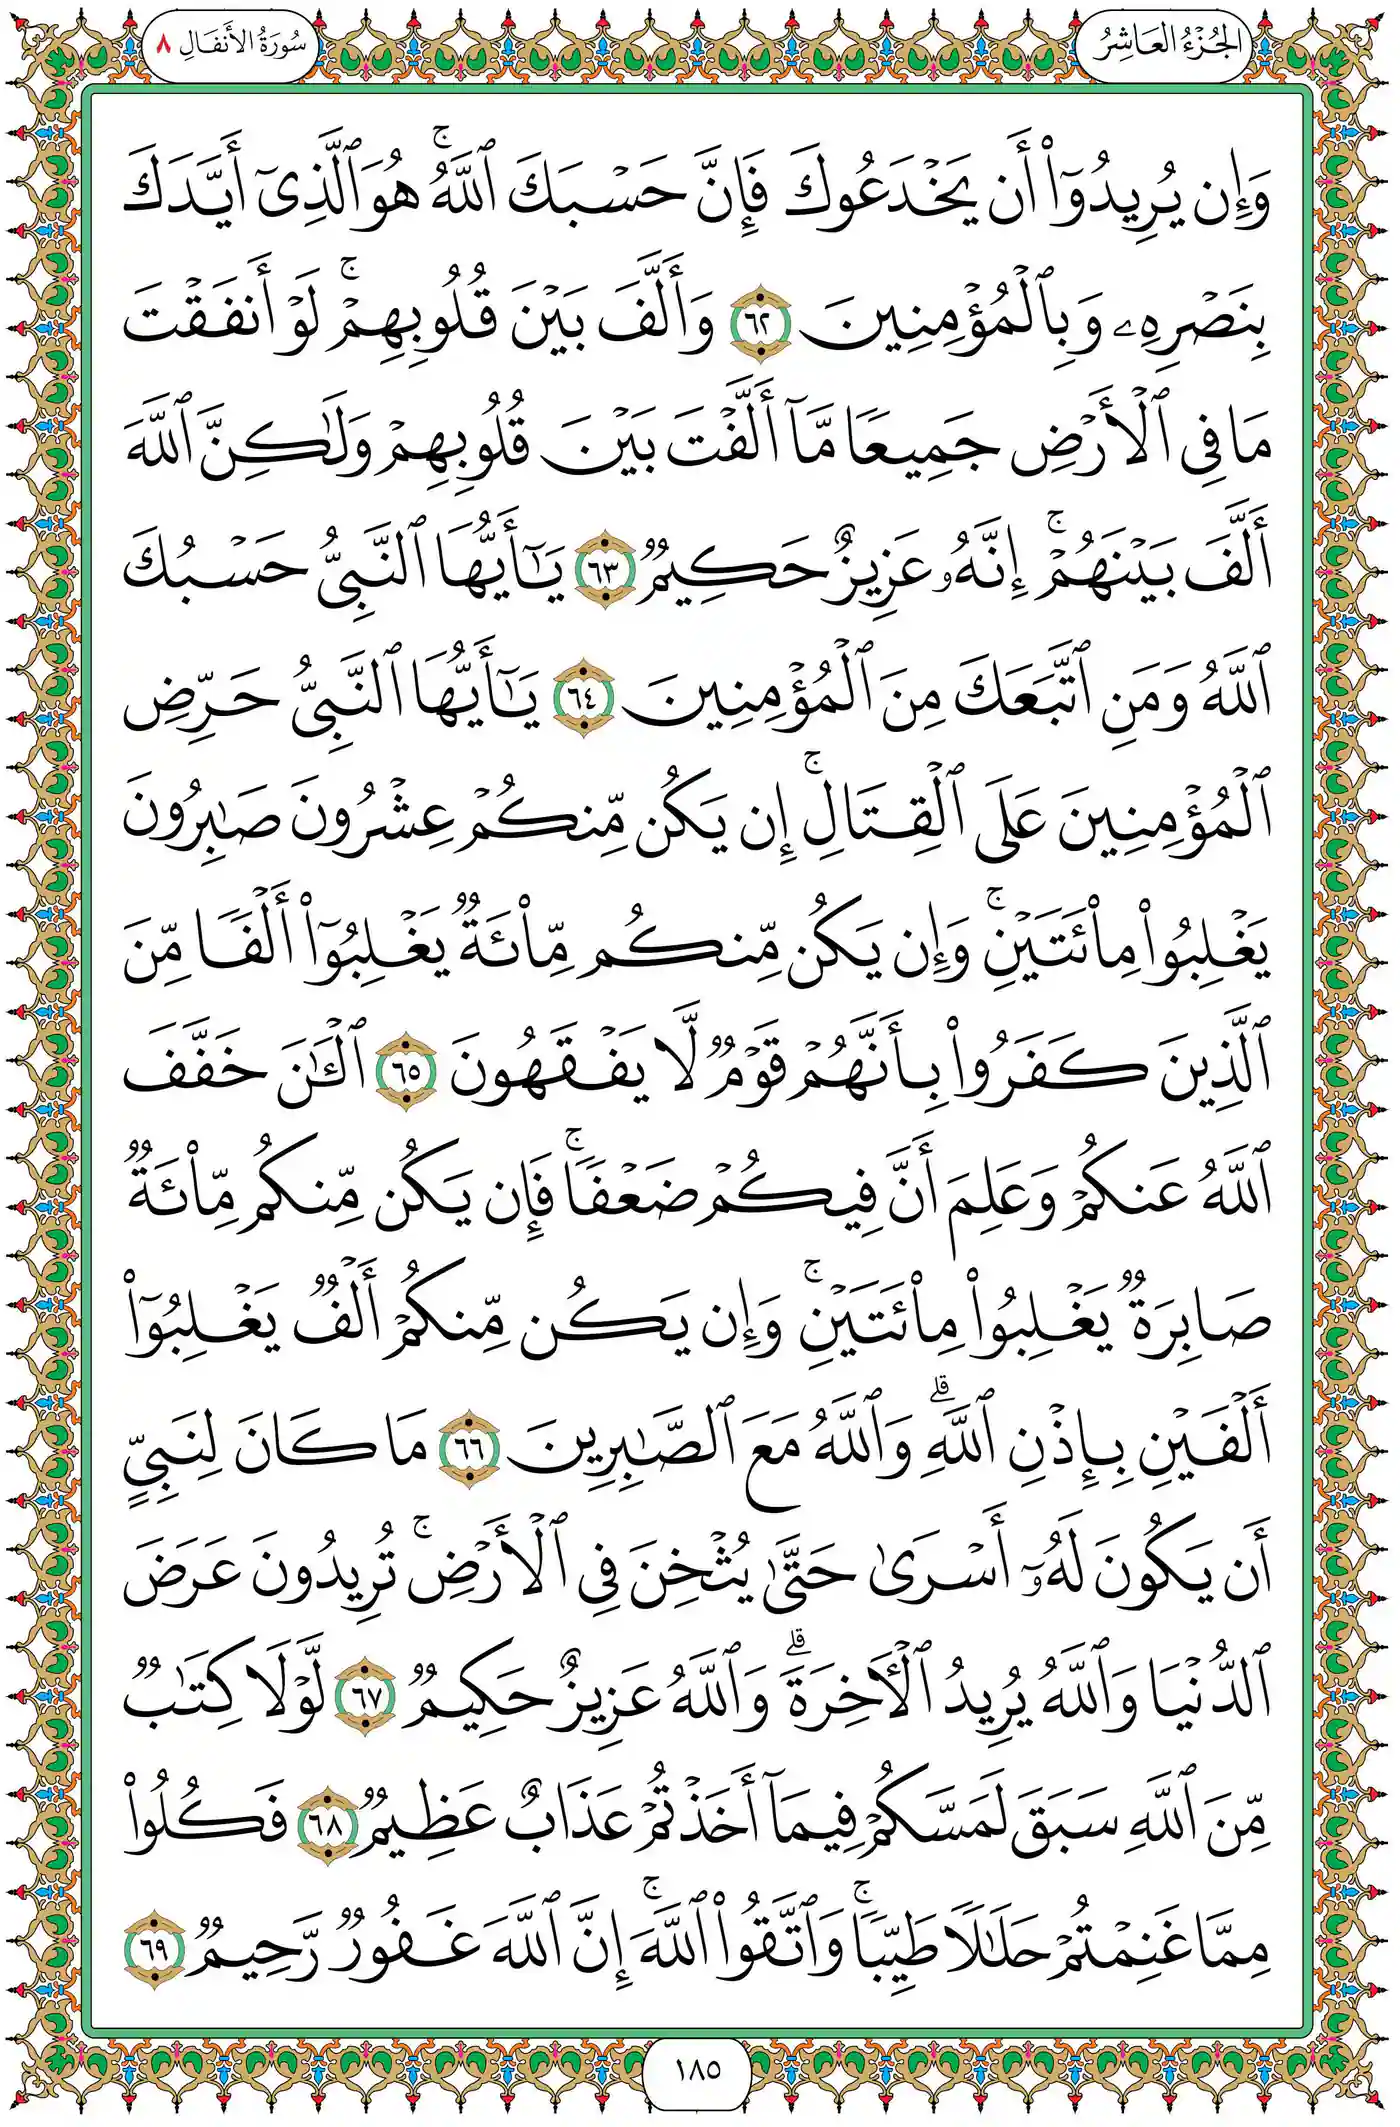 الجُزْءُ العَاشِرُ
سُورَةُ الأَنفَالِ ٨
وَإِن يُرِيدُوٓاْ أَن يَخۡدَعُوكَ فَإِنَّ حَسۡبَكَ ٱللَّهُۚ هُوَ ٱلَّذِيٓ أَيَّدَكَ
بِنَصۡرِهِۦ وَبِٱلۡمُؤۡمِنِينَ ٦٢ وَأَلَّفَ بَيۡنَ قُلُوبِهِمۡۚ لَوۡ أَنفَقۡتَ
مَا فِي ٱلۡأَرۡضِ جَمِيعٗا مَّآ أَلَّفۡتَ بَيۡنَ قُلُوبِهِمۡ وَلَٰكِنَّ ٱللَّهَ
أَلَّفَ بَيۡنَهُمۡۚ إِنَّهُۥ عَزِيزٌ حَكِيمٞ ٦٣ يَٰٓأَيُّهَا ٱلنَّبِيُّ حَسۡبُكَ
ٱللَّهُ وَمَنِ ٱتَّبَعَكَ مِنَ ٱلۡمُؤۡمِنِينَ ٦٤ يَٰٓأَيُّهَا ٱلنَّبِيُّ حَرِّضِ
ٱلۡمُؤۡمِنِينَ عَلَى ٱلۡقِتَالِۚ إِن يَكُن مِّنكُمۡ عِشۡرُونَ صَٰبِرُونَ
يَغۡلِبُواْ مِاْئَتَيۡنِۚ وَإِن يَكُن مِّنكُم مِّاْئَةٞ يَغۡلِبُوٓاْ أَلۡفٗا مِّنَ
ٱلَّذِينَ كَفَرُواْ بِأَنَّهُمۡ قَوۡمٞ لَّا يَفۡقَهُونَ ٦٥ ٱلۡـَٰٔنَ خَفَّفَ
ٱللَّهُ عَنكُمۡ وَعَلِمَ أَنَّ فِيكُمۡ ضَعۡفٗاۚ فَإِن يَكُن مِّنكُم مِّاْئَةٞ
صَابِرَةٞ يَغۡلِبُواْ مِاْئَتَيۡنِۚ وَإِن يَكُن مِّنكُمۡ أَلۡفٞ يَغۡلِبُوٓاْ
أَلۡفَيۡنِ بِإِذۡنِ ٱللَّهِۗ وَٱللَّهُ مَعَ ٱلصَّٰبِرِينَ ٦٦ مَا كَانَ لِنَبِيٍّ
أَن يَكُونَ لَهُۥٓ أَسۡرَىٰ حَتَّىٰ يُثۡخِنَ فِي ٱلۡأَرۡضِۚ تُرِيدُونَ عَرَضَ
ٱلدُّنۡيَا وَٱللَّهُ يُرِيدُ ٱلۡأٓخِرَةَۗ وَٱللَّهُ عَزِيزٌ حَكِيمٞ ٦٧ لَّوۡلَا كِتَٰبٞ
مِّنَ ٱللَّهِ سَبَقَ لَمَسَّكُمۡ فِيمَآ أَخَذۡتُمۡ عَذَابٌ عَظِيمٞ ٦٨ فَكُلُواْ
مِمَّا غَنِمۡتُمۡ حَلَٰلٗا طَيِّبٗاۚ وَٱتَّقُواْ ٱللَّهَۚ إِنَّ ٱللَّهَ غَفُورٞ رَّحِيمٞ ٦٩
١٨٥